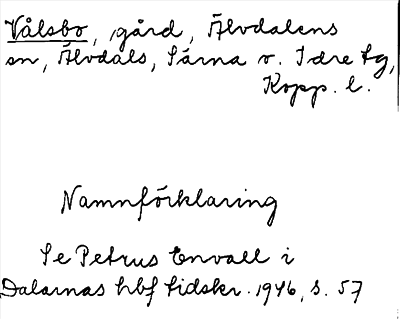 Vålsbo, gård, Älvdalens
sn, Älvdals, Särna o. Idre tg,
Kopp. l.
Namnförklaring
Se Petrus Envall i
Dalarnas hbf tidskr. 1946, s. 57